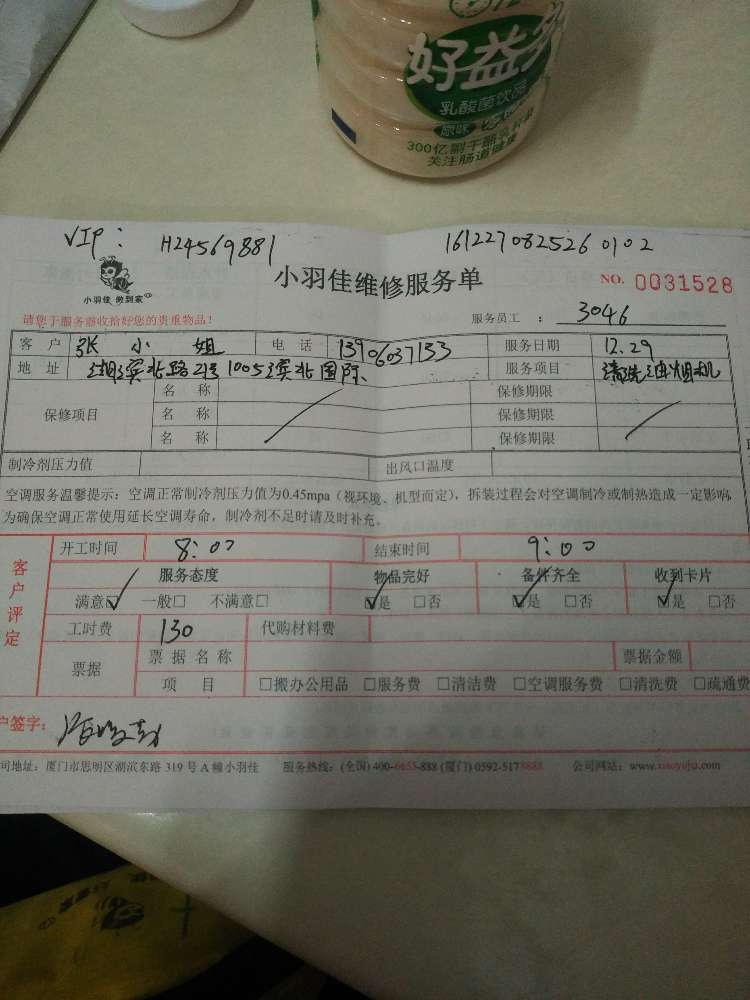 好益多
乳酸菌饮品
原味
300亿
关注肠道健康
VIP: H24569881 1612270825260102
小羽佳 做到家
小羽佳维修服务单
NO. 0031528
请您于服务器收拾好您的贵重物品！
服务员工： 3046
客户 张小姐 电话 13906037133 服务日期 12.29
地址 湖滨北路21号1005滨北国际 服务项目 清洗油烟机
保修项目
名称 保修期限
名称 保修期限
名称 保修期限
制冷剂压力值 出风口温度
空调服务温馨提示：空调正常制冷剂压力值为0.45mpa（视环境、机型而定），拆装过程会对空调制冷或制热造成一定影响，
为确保空调正常使用延长空调寿命，制冷剂不足时请及时补充。
客户评定
开工时间 8:00 结束时间 9:00
服务态度 物品完好 备件齐全 收到卡片
满意☑ 一般□ 不满意□ ☑是 □否 ☑是 □否 ☑是 □否
工时费 130 代购材料费
票据 票据名称 票据金额
项目 □搬办公用品 □服务费 □清洁费 □空调服务费 □清洗费 □疏通费
户签字：
司地址：厦门市思明区湖滨东路319号A幢小羽佳 服务热线：(全国) 400-6655-888 (厦门) 0592-5178888 公司网站：www.xiaoyujia.com